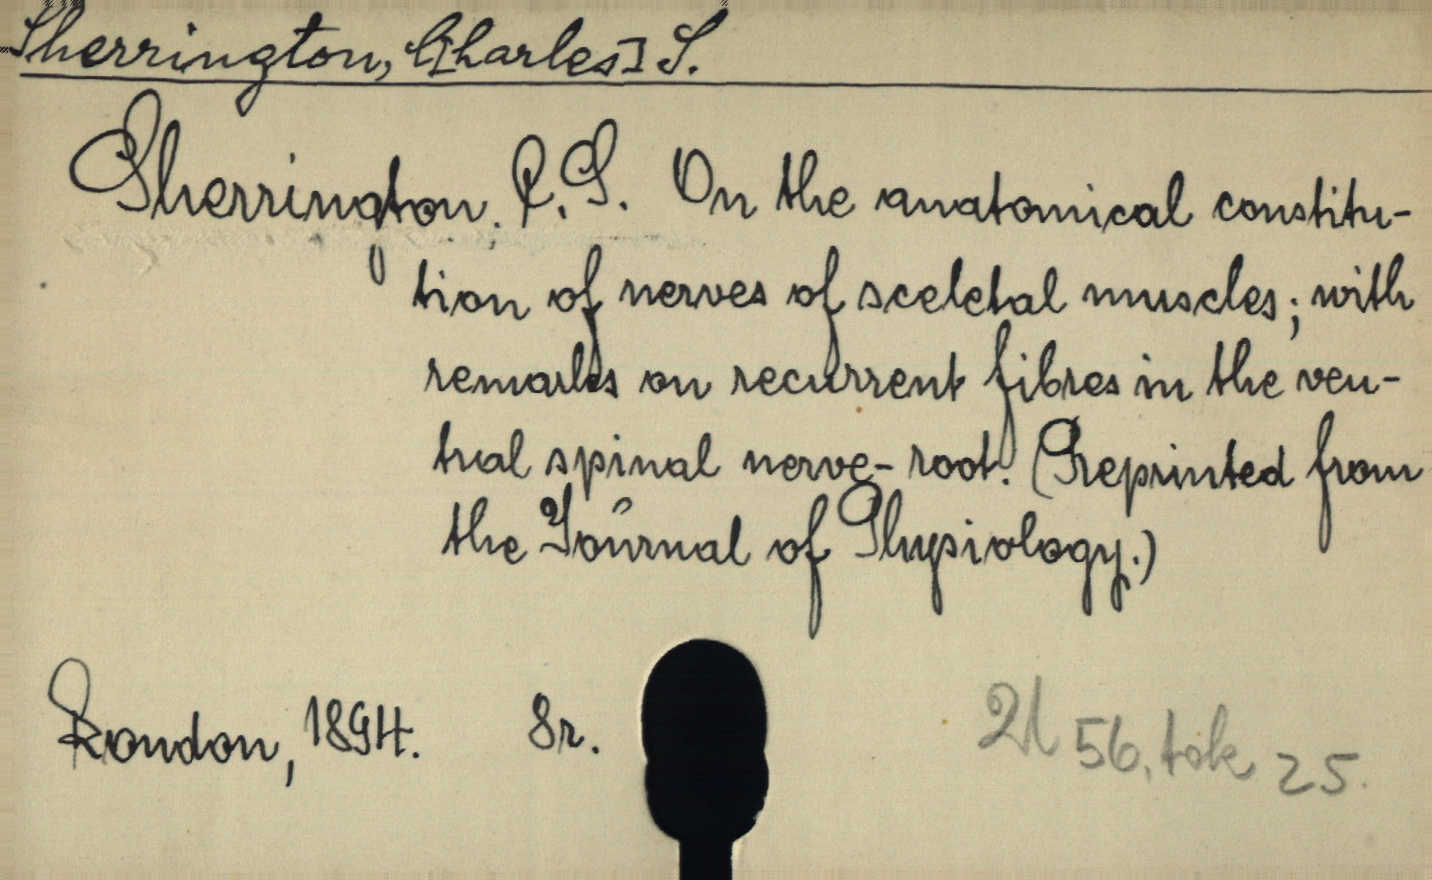 Sherrington, C[harles] S.
Sherrington. C. S. On the anatomical constitu-
tion of nerves of sceletal muscles; with
remarks on recurrent fibres in the ven-
tral spinal nerve-root. (Reprinted from
the Journal of Physiology.)
London, 1894. 8r.
56. tok 25.